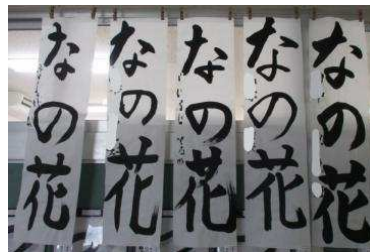 なの花
なの花
なの花
なの花
なの花